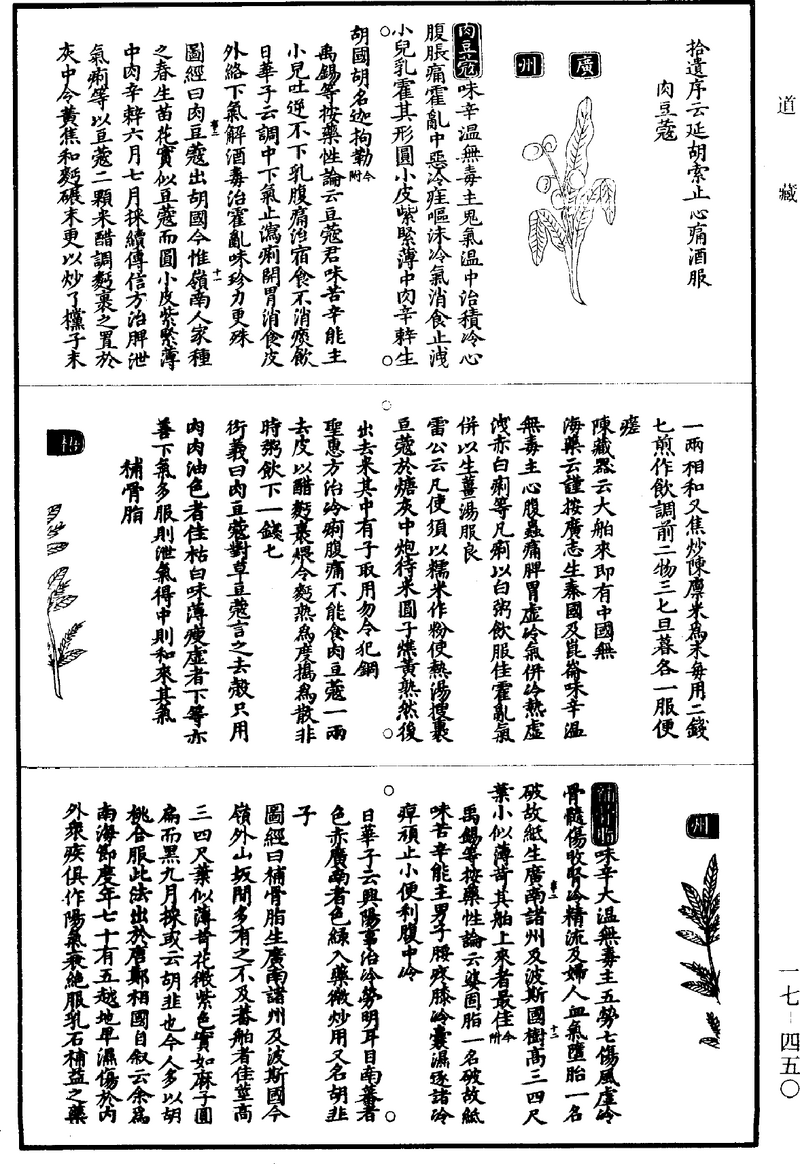 道藏
拾遺序云延胡索止心痛酒服
肉豆蔻
廣
州
肉豆蔻味辛溫無毒主鬼氣溫中治積冷心
腹脹痛霍亂中惡冷疰嘔沫冷氣消食止洩
小兒乳霍其形圓小皮紫緊薄中肉辛辣生
胡國胡名迦拘勒今附
禹錫等按藥性論云豆蔻君味苦辛能主
小兒吐逆不下乳腹痛治宿食不消痰飲
日華子云調中下氣止瀉痢開胃消食皮
外絡下氣解酒毒治霍亂味珍力更殊
圖經曰肉豆蔻出胡國今惟嶺南人家種
之春生苗花實似豆蔻而圓小皮紫緊薄
中肉辛辣六月七月採續傳信方治脾泄
氣痢等以豆蔻二顆米醋調麪裹之置於
灰中令黃焦和麪碾末更以炒了欓子末
一兩相和又焦炒陳廪米為末每用二錢
七煎作飲調前二物三七旦暮各一服便
瘥
陳藏器云大舶來即有中國無
海藥云謹按廣志生秦國及崑崙味辛溫
無毒主心腹蟲痛脾胃虛冷氣併冷熱虛
洩赤白痢等凡痢以白粥飲服佳霍亂氣
併以生薑湯服良
雷公云凡使須以糯米作粉使熱湯搜裹
豆蔻於煻灰中炮待米圓子燋黃熟然後
出去米其中有子取用勿令犯銅
聖惠方治冷痢腹痛不能食肉豆蔻一兩
去皮以醋麪裹煨令麪熟為度搗為散非
時粥飲下一錢七
衍義曰肉豆蔻對草豆蔻言之去殼只用
肉肉油色者佳枯白味薄瘦虛者下等亦
善下氣多服則泄氣得中則和來其氣
補骨脂
州
補骨脂味辛大溫無毒主五勞七傷風虛冷
骨髓傷敗腎冷精流及婦人血氣墮胎一名
破故紙生廣南諸州及波斯國樹高三四尺
葉小似薄苛其舶上來者最佳今附
禹錫等按藥性論云婆固脂一名破故紙
味苦辛能主男子腰疼膝冷囊濕逐諸冷
痺頑止小便利腹中冷
日華子云興陽事治冷勞明耳目南蕃者
色赤廣南者色綠入藥微炒用又名胡韭
子
圖經曰補骨脂生廣南諸州及波斯國今
嶺外山坂間多有之不及蕃舶者佳莖高
三四尺葉似薄苛花微紫色實如麻子圓
扁而黑九月採或云胡韭也今人多以胡
桃合服此法出於唐鄭相國自敘云余為
南海節度年七十有五越地卑濕傷於內
外衆疾俱作陽氣衰絕服乳石補益之藥
一七-四五〇